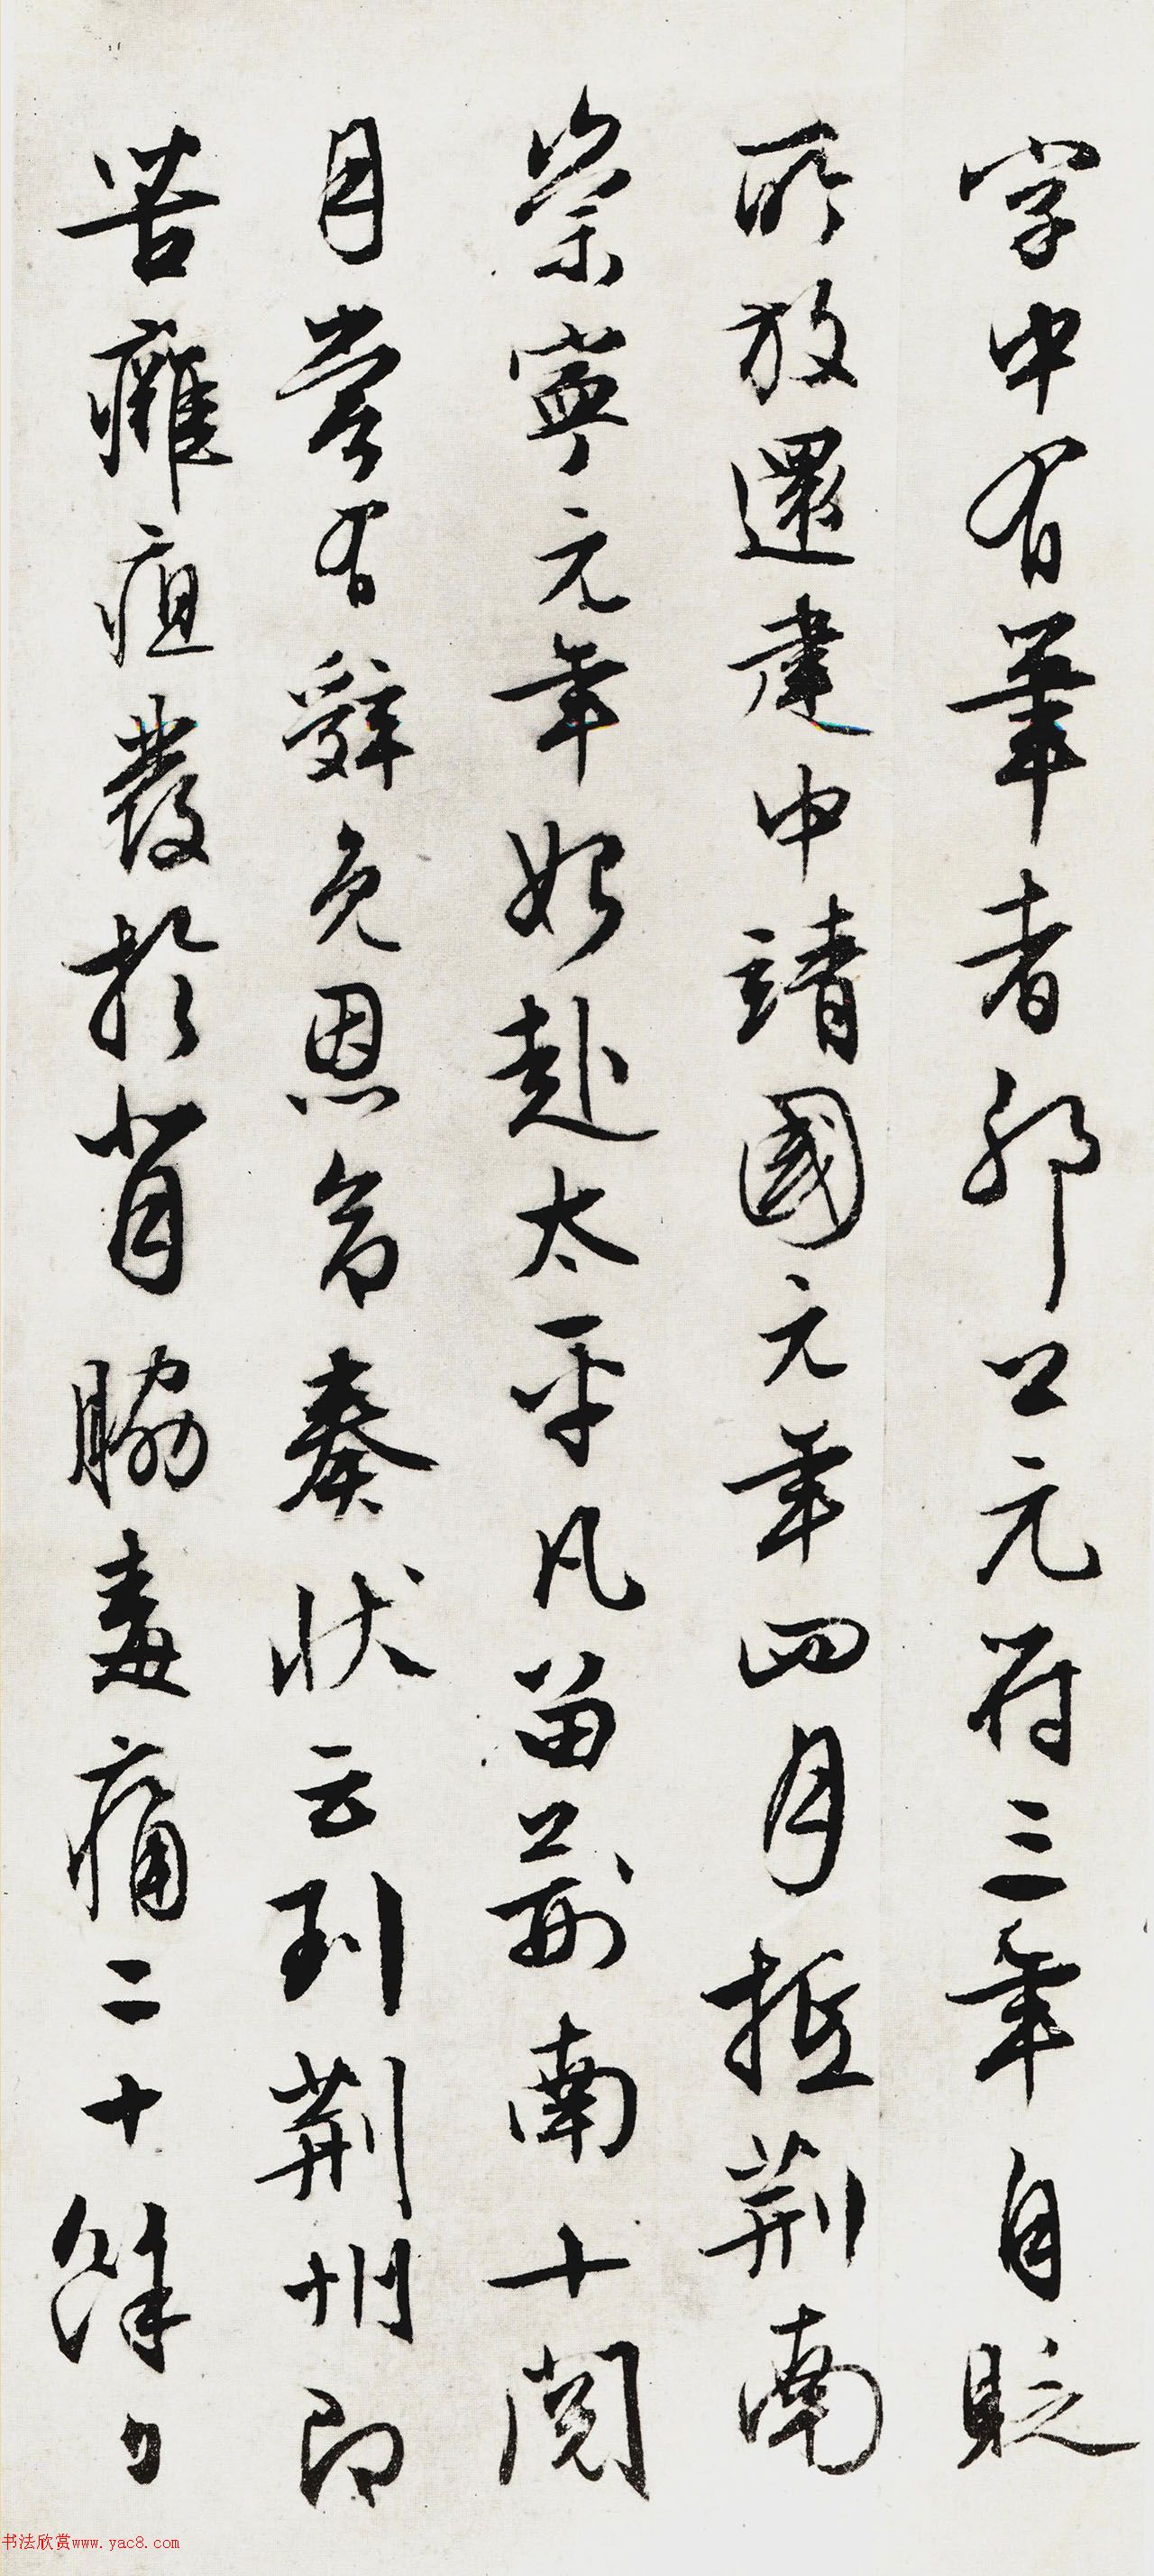 字中有筆者耶公元符三年自貶
所放還建中靖國元年四月抵荆南
崇寧元年始赴太平凡留荆南十閱
月嘗有辭免恩命奏狀云到荆州即
苦癰疽發於背脇毒痛二十餘日
书法欣赏www.yac8.com